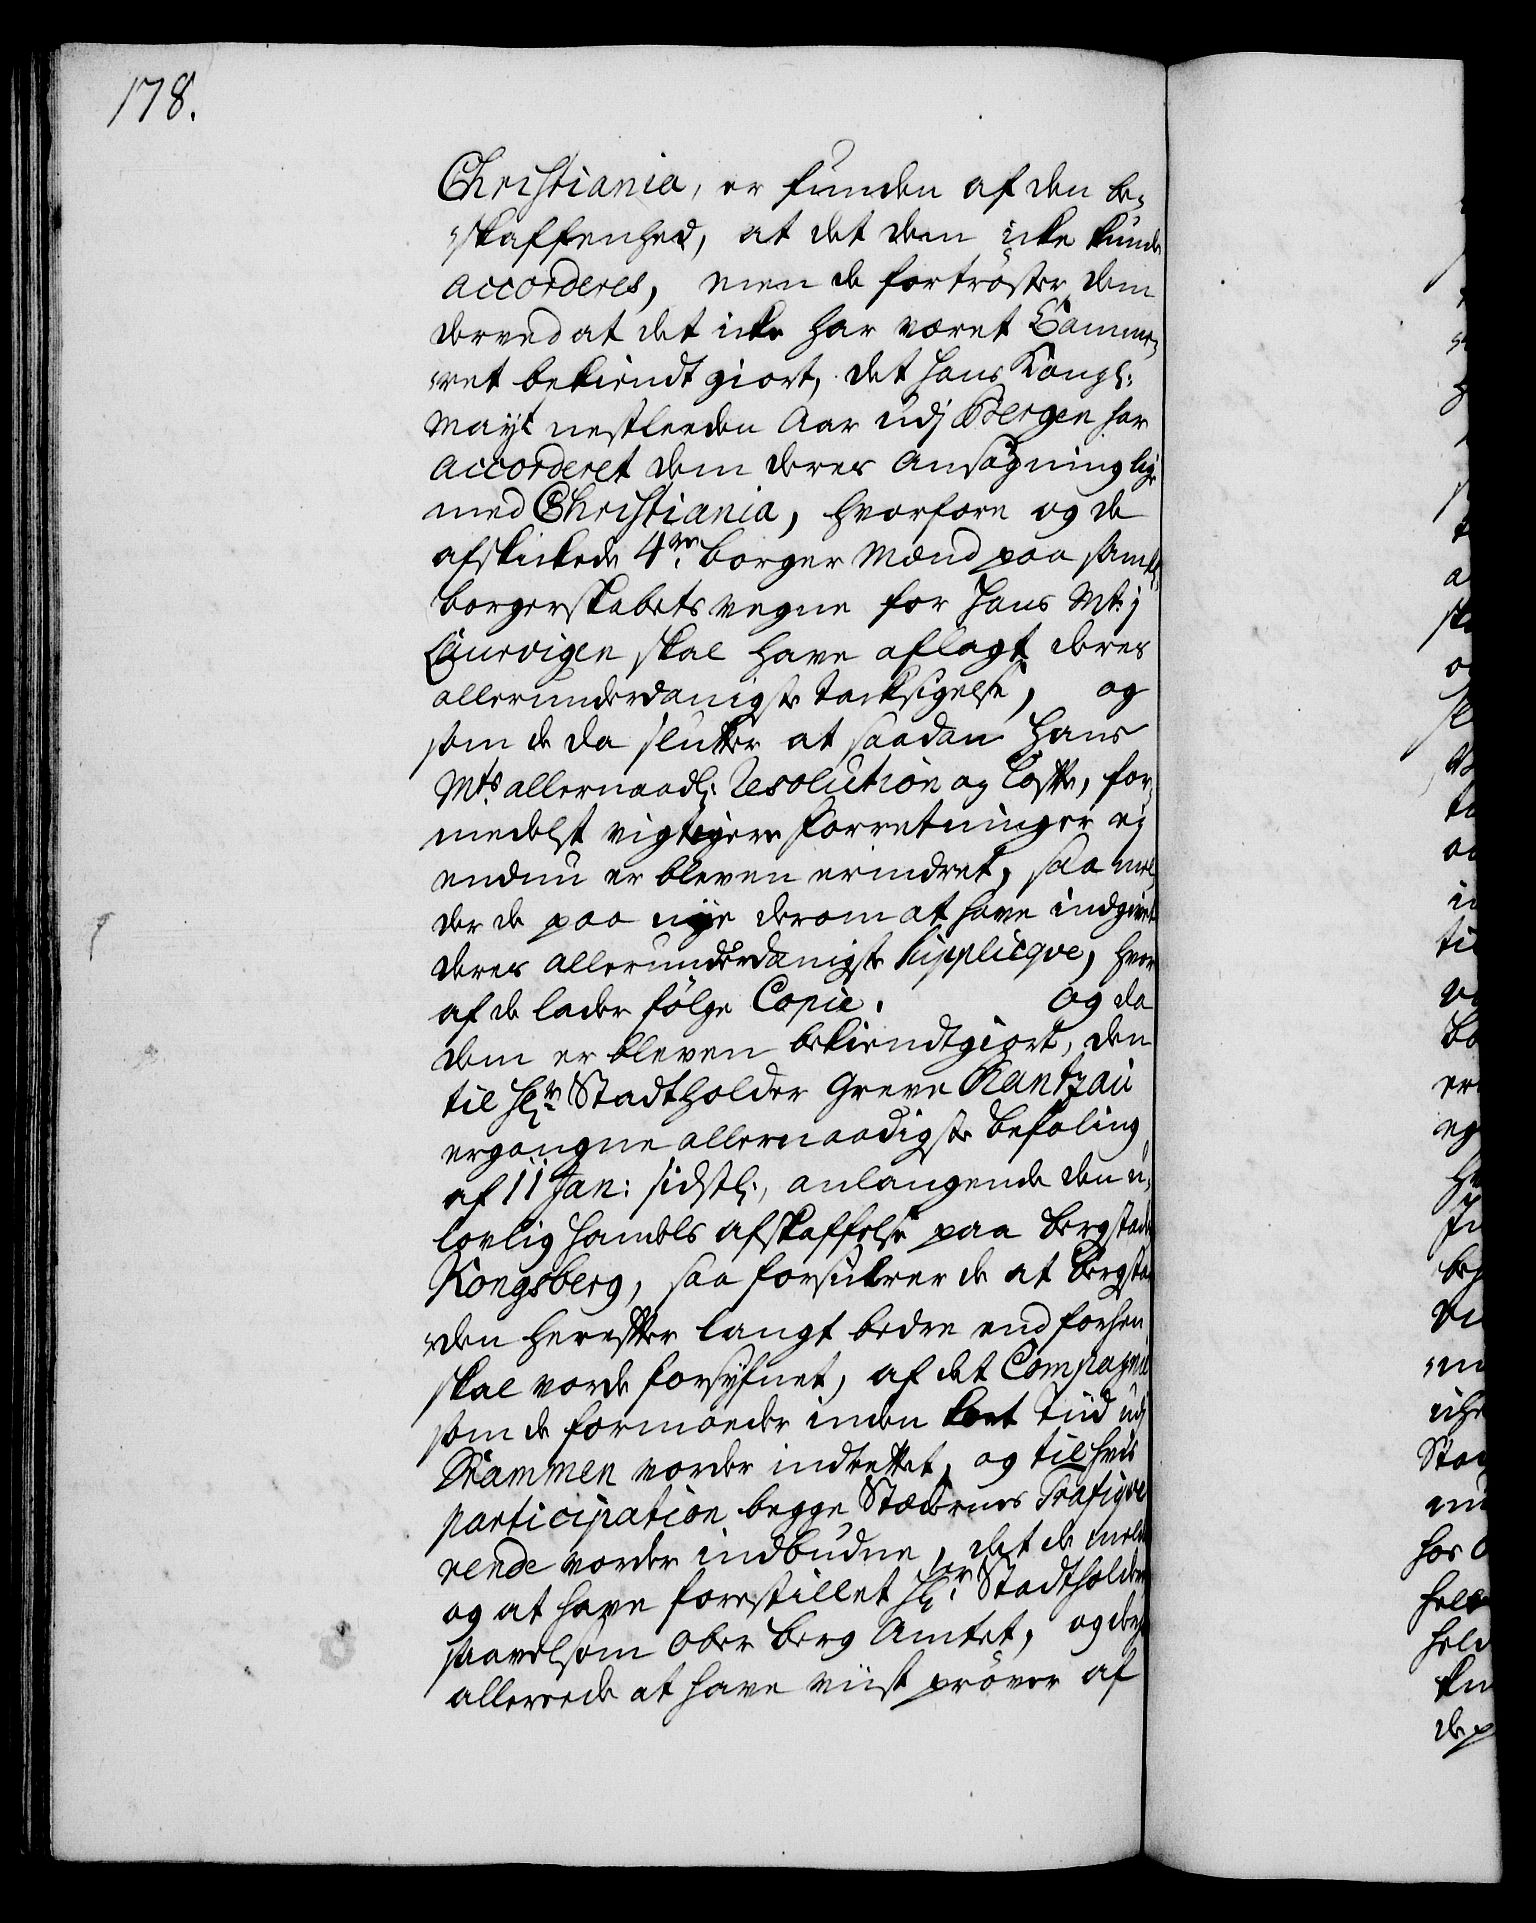 178.
Christiania, er funden af den be-
skaffenhed, at det dem icke kunde
accorderes, men de fortröster dem
derved at det icke har været Camme-
ret bekiendt giort, det Hans Kongl:
Mayt nestleeden Aar udj Bergen har
accorderet dem deres Ansøgning lige
med Christiania, hvorfore og de
afskickede 4re borger Mænd paa samtl:
borgerskabets vegne for Hans Mt: j
Laurvigen skal have aflagt deres
allerunderdanigste tacksigelse, og
som de da slutter at saadan Hans
Mts allernaadl: Resolution og Løfte, for-
medelst vigtigere Forretninger ej
endnu er bleven erindret, saa mel-
der de paa nye derom at have indgivet
deres allerunderdanigste Supplicqve, hvor
af de lader følge Copie. Og da
dem er bleven bekiendtgiort, den
til Hr: Stadtholder Greve Rantzau
ergangne allernaadigste befaling
af 11 Jan: sidstl:, anlangende den u-
lovlig Handels afskaffelse paa bergstaden
Kongsberg, saa forsikrer de at bergsta-
den herefter langt bedre end forhen
skal vorde forsÿnet, af det Compagnie
som de formoeder inden kort Tiid udj
Drammen vorder indrettet, og til hvis
participation begge Stædernes Trafiqve-
rende vorder indbudne, det de melder
og at have forestillet Hr: Stadtholderen
saavelsom Ober Berg Amtet, og der
allereede at have viist pröver af